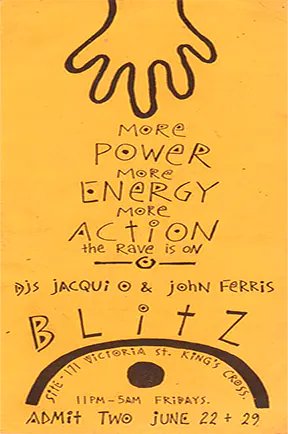 more
POWER
more
ENERGY
more
ACTION
the Rave is on
DJS JACQUI O & JOHN FERRIS
BLitZ
SITE - 171 VICTORIA St. KING'S CROSS.
11PM - 5AM FRIDAYS.
ADMit TWO JUNE 22 + 29